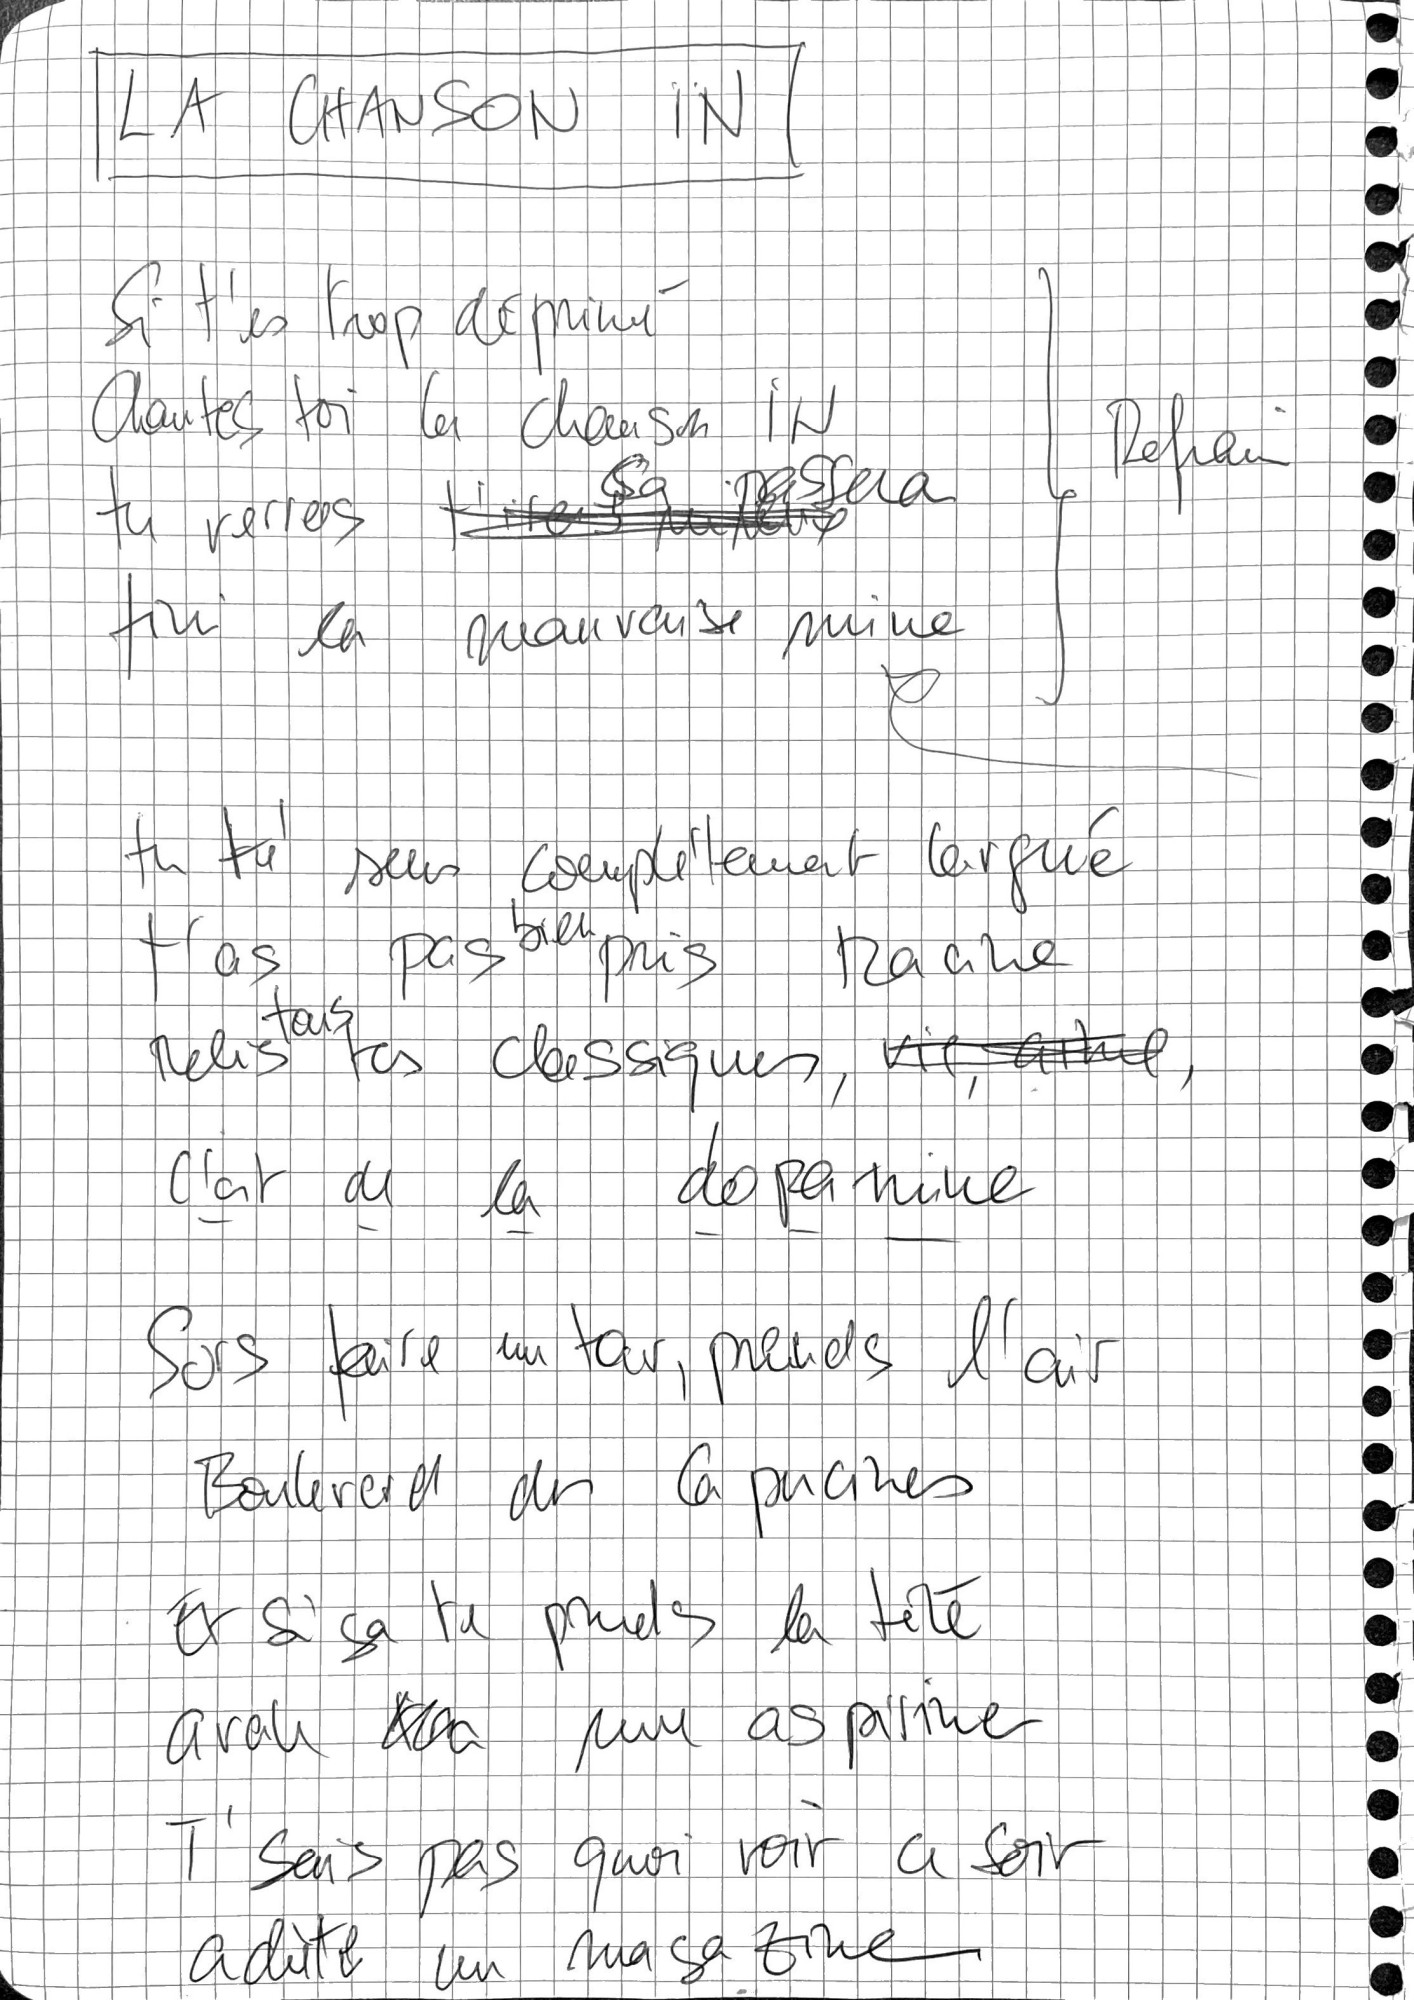 LA CHANSON IN
Si t'es trop déprimé
Chantes toi la chanson IN
Refrain
tu verras ça passera
fini la mauvaise mine
tu te sens complètement largué
t'as pas bien pris racine
relis tous tes classiques,
c'est de la dopamine
Sors faire un tour, prends l'air
Boulevard des Capucines
Et si ça te prends la tête
avale une aspirine
T'sais pas quoi voir ce soir
achète un magazine